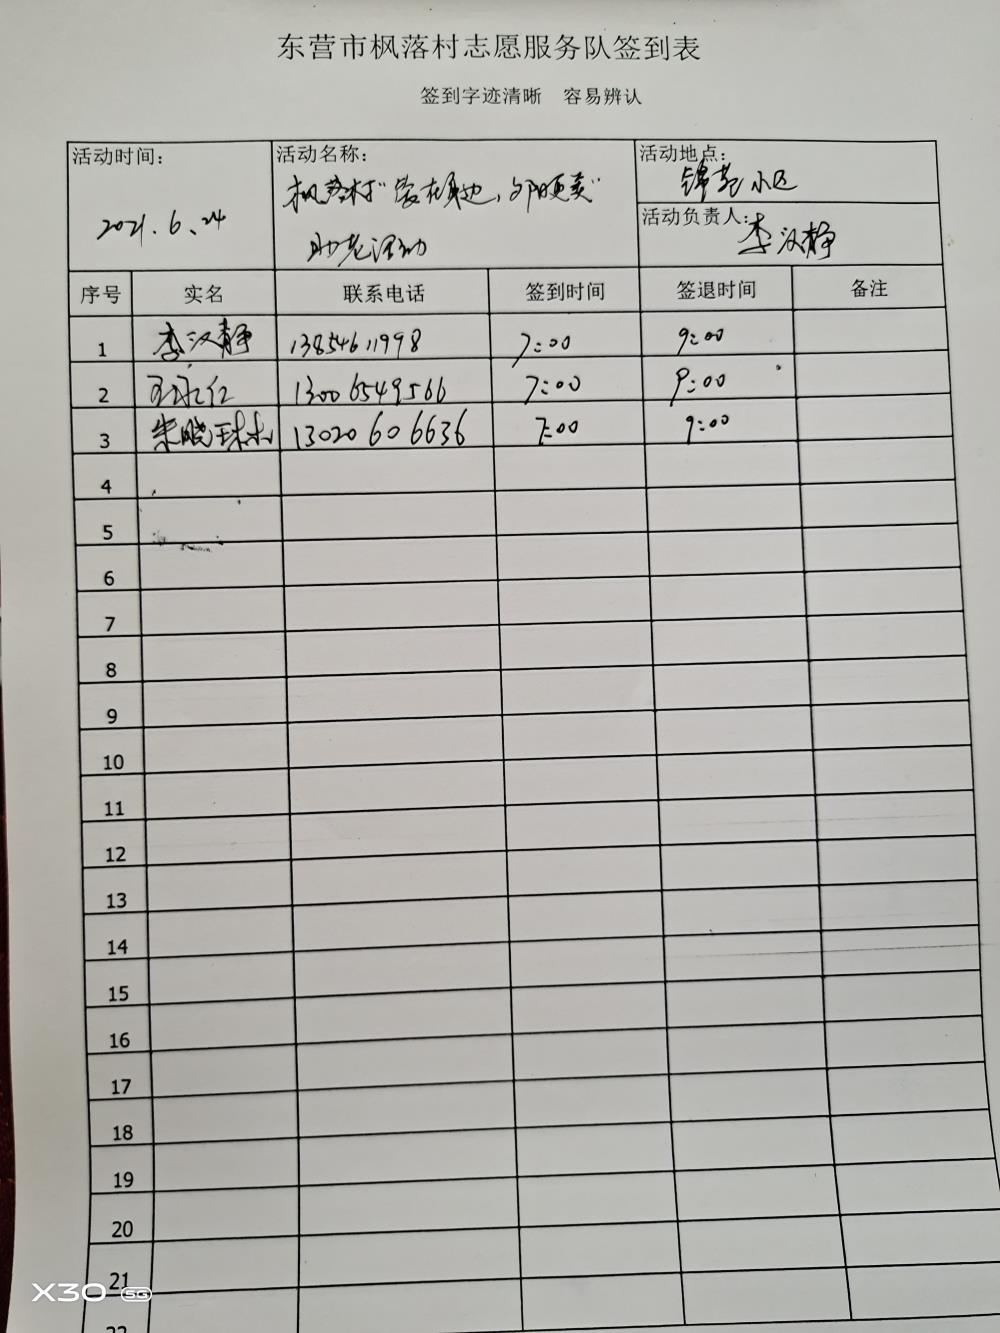 东营市枫落村志愿服务队签到表
签到字迹清晰 容易辨认
活动时间:
2021.6.24
活动名称:
枫落村"爱在身边,夕阳更美"
助老活动
活动地点:
锦苑小区
活动负责人:
李汉静
序号 实名 联系电话 签到时间 签退时间 备注
1 李汉静 13854611998 7:00 9:00
2 王永仁 13006549566 7:00 9:00
3 朱晓琳 13020606636 7:00 9:00
4
5
6
7
8
9
10
11
12
13
14
15
16
17
18
19
20
21
22
X30 5G